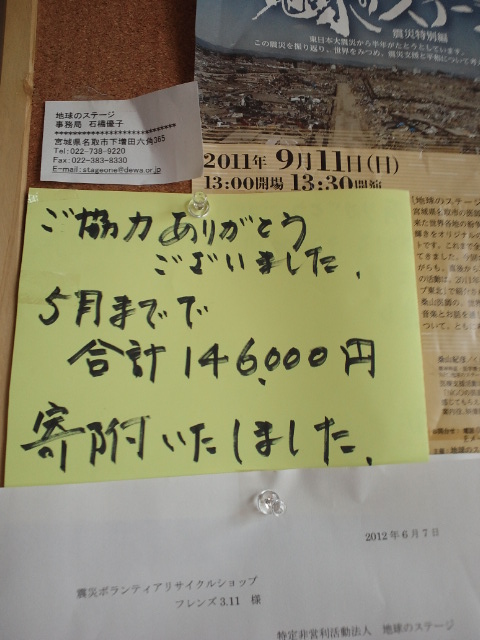 地球のステージ
震災特別編
東日本大震災から半年がたとうとしています。
この震災を振り返り、世界をみつめ、震災支援と平和について考え
2011年 9月11日(日)
13:00開場 13:30開演
地球のステージ
事務局 石橋優子
****************************
宮城県名取市下増田六角365
Tel:022-738-9220
Fax:022-383-8330
E-mail:stageone@dewa.or.jp
ご協力ありがとう
ございました。
5月までで
合計146,000円
寄附いたしました。
2012年6月7日
震災ボランティアリサイクルショップ
フレンズ3.11 様
特定非営利活動法人 地球のステージ